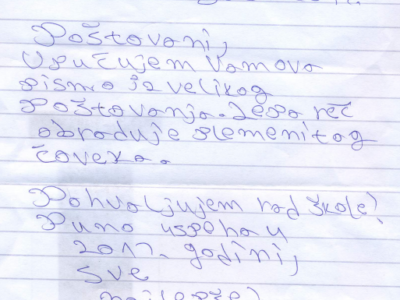 Poštovani,
Upućujem Vamova
pismo iz velikog
poštovanja. Lepa reč
obraduje plemenitog
čoveka.
Pohvaljujem rad škole!
Puno uspeha u
2017. godini,
sve
najlepše!